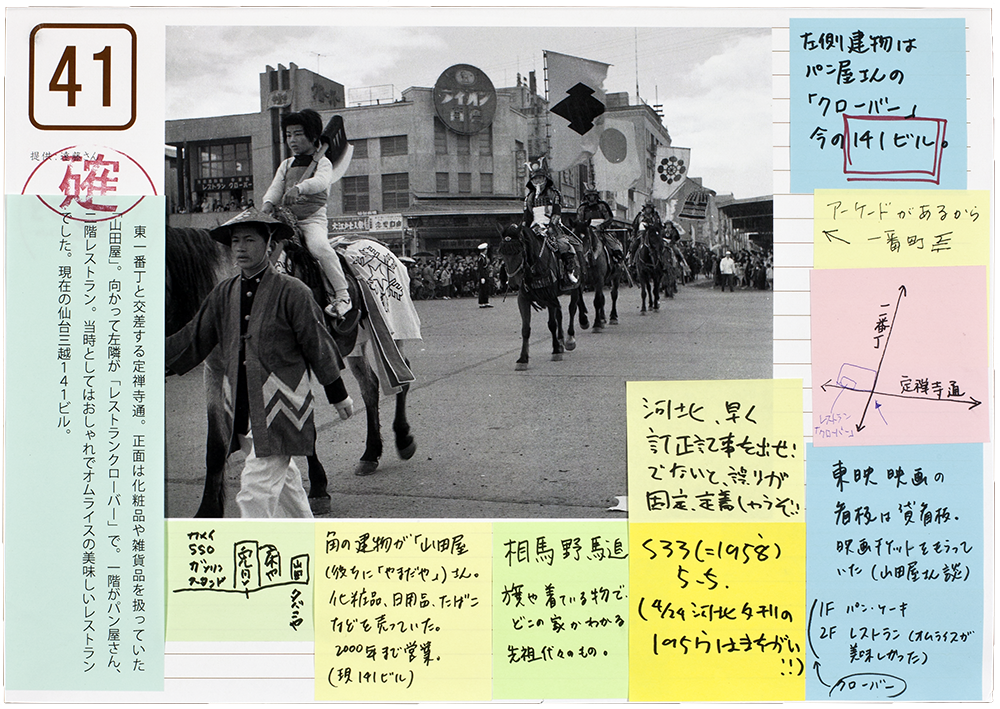 41
提供:遠藤さん
確
東一番丁と交差する定禅寺通。正面は化粧品や雑貨品を扱っていた
「山田屋」。向かって左隣が「レストランクローバー」で。一階がパン屋さん、
二階レストラン。当時としてはおしゃれでオムライスの美味しいレストラン
でした。現在の仙台三越141ビル。
ライオン
レストラン クローバー
左側建物は
パン屋さんの
「クローバー」
今の141ビル。
アーケードがあるから
一番町
一番丁
定禅寺通
レストラン
「クローバー」
河北、早く
訂正記事を出せ!
でないと、誤りが
固定、定着しちゃうぞ!
東映映画の
看板は貸看板。
映画チケットをもらって
いた(山田屋さん談)
1F パン・ケーキ
2F レストラン(オムライスが
美味しかった)
クローバー
カメイ
SSO
ガソリン
スタンド
山田
タバコや
角の建物が「山田屋
(後ちに「やまだや」)さん。
化粧品、日用品、たばこ
などを売っていた。
2000年まで営業。
(現141ビル)
相馬野馬追
旗や着ている物で、
どこの家かわかる
先祖代々のもの。
S33(=1958)
5.5.
(4/29河北夕刊の
1955はまちがい
!!)